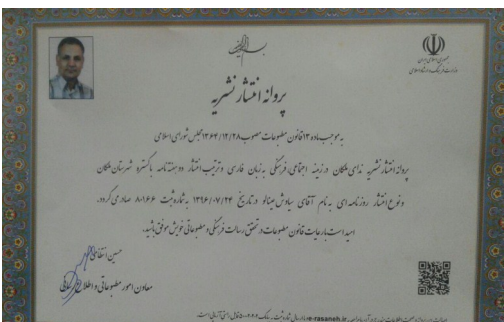 جمهوری اسلامی ایران
وزارت فرهنگ و ارشاد اسلامی
پروانه انتشار نشریه
به موجب ماده ۱۳ قانون مطبوعات مصوب ۱۳۶۴/۱۲/۲۸ مجلس شورای اسلامی
پروانه انتشار نشریه ندای ملکان در زمینه اجتماعی، فرهنگی به زبان فارسی و ترتیب انتشار دو هفته نامه با گستره شهرستان ملکان
و نوع انتشار روزنامه ای به نام آقای سیاوش صنالو در تاریخ ۱۳۹۶/۰۷/۲۴ به شماره ثبت ۸۰۱۶۶ صادر می گردد.
امید است با رعایت قانون مطبوعات در تحقق رسالت فرهنگی و مطبوعاتی خویش موفق باشید.
حسین انتظامی
معاون امور مطبوعاتی و اطلاع رسانی
e-rasaneh.ir